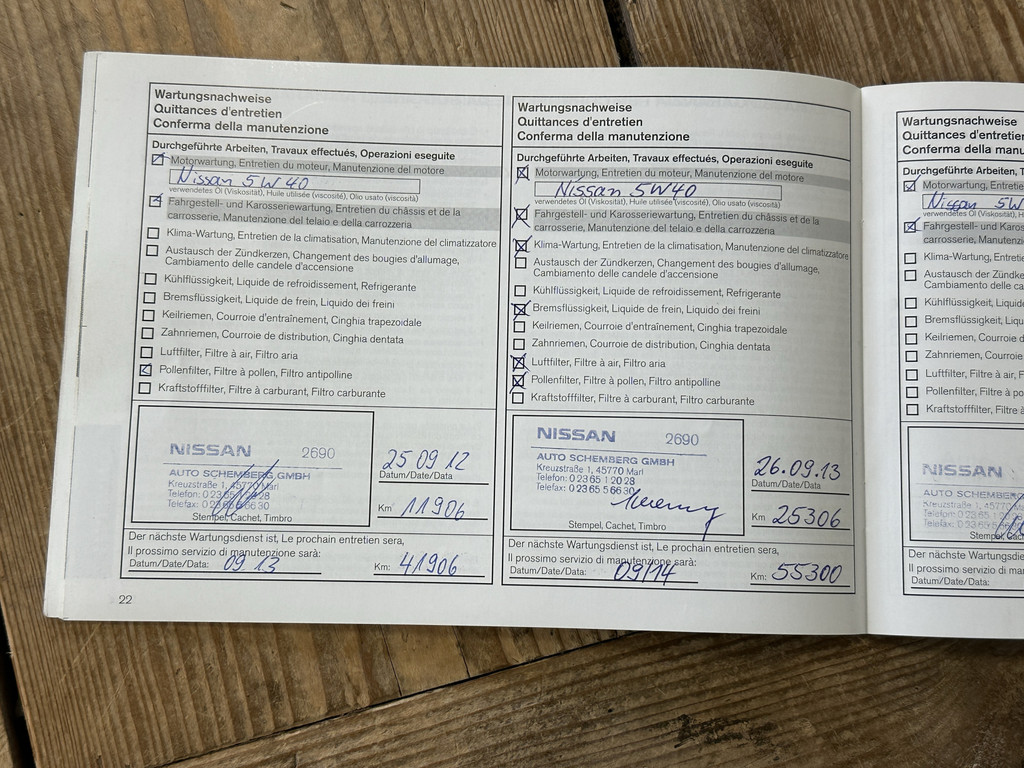 Wartungsnachweise
Quittances d'entretien
Conferma della manutenzione
Durchgeführte Arbeiten, Travaux effectués, Operazioni eseguite
Motorwartung, Entretien du moteur, Manutenzione del motore
Nissan 5W40
verwendetes Öl (Viskosität), Huile utilisée (viscosité), Olio usato (viscosità)
Fahrgestell- und Karosseriewartung, Entretien du châssis et de la
carrosserie, Manutenzione del telaio e della carrozzeria
Klima-Wartung, Entretien de la climatisation, Manutenzione del climatizzatore
Austausch der Zündkerzen, Changement des bougies d'allumage,
Cambiamento delle candele d'accensione
Kühlflüssigkeit, Liquide de refroidissement, Refrigerante
Bremsflüssigkeit, Liquide de frein, Liquido dei freini
Keilriemen, Courroie d'entraînement, Cinghia trapezoidale
Zahnriemen, Courroie de distribution, Cinghia dentata
Luftfilter, Filtre à air, Filtro aria
Pollenfilter, Filtre à pollen, Filtro antipolline
Kraftstofffilter, Filtre à carburant, Filtro carburante
NISSAN 2690
AUTO SCHEMBERG GMBH
Kreuzstraße 1, 45770 Marl
Telefon: 0 23 65 1 20 28
Telefax: 0 23 65 5 66 30
Stempel, Cachet, Timbro
25 09 12
Datum/Date/Data
Km 11906
Der nächste Wartungsdienst ist, Le prochain entretien sera,
Il prossimo servizio di manutenzione sarà:
Datum/Date/Data: 09 13 Km: 41906
22
Wartungsnachweise
Quittances d'entretien
Conferma della manutenzione
Durchgeführte Arbeiten, Travaux effectués, Operazioni eseguite
Motorwartung, Entretien du moteur, Manutenzione del motore
Nissan 5W40
verwendetes Öl (Viskosität), Huile utilisée (viscosité), Olio usato (viscosità)
Fahrgestell- und Karosseriewartung, Entretien du châssis et de la
carrosserie, Manutenzione del telaio e della carrozzeria
Klima-Wartung, Entretien de la climatisation, Manutenzione del climatizzatore
Austausch der Zündkerzen, Changement des bougies d'allumage,
Cambiamento delle candele d'accensione
Kühlflüssigkeit, Liquide de refroidissement, Refrigerante
Bremsflüssigkeit, Liquide de frein, Liquido dei freini
Keilriemen, Courroie d'entraînement, Cinghia trapezoidale
Zahnriemen, Courroie de distribution, Cinghia dentata
Luftfilter, Filtre à air, Filtro aria
Pollenfilter, Filtre à pollen, Filtro antipolline
Kraftstofffilter, Filtre à carburant, Filtro carburante
NISSAN 2690
AUTO SCHEMBERG GMBH
Kreuzstraße 1, 45770 Marl
Telefon: 0 23 65 1 20 28
Telefax: 0 23 65 5 66 30
Stempel, Cachet, Timbro
26.09.13
Datum/Date/Data
Km 25306
Der nächste Wartungsdienst ist, Le prochain entretien sera,
Il prossimo servizio di manutenzione sarà:
Datum/Date/Data: 09/14 Km: 55300
Wartungsnachweise
Quittances d'entretien
Conferma della manu
Durchgeführte Arbeiten, T
Motorwartung, Entretien
Nissan 5W
verwendetes Öl (Viskosität)
Fahrgestell- und Karos
carrosserie, Manutenzi
Klima-Wartung, Entretie
Austausch der Zündkerz
Cambiamento delle ca
Kühlflüssigkeit, Liquide
Bremsflüssigkeit, Liqu
Keilriemen, Courroie d
Zahnriemen, Courroie
Luftfilter, Filtre à air, F
Pollenfilter, Filtre à po
Kraftstofffilter, Filtre à
NISSAN
AUTO SCHEMBERG
Kreuzstraße 1, 45770
Stempel, Cach
Der nächste Wartungsdie
Il prossimo servizio di ma
Datum/Date/Data: